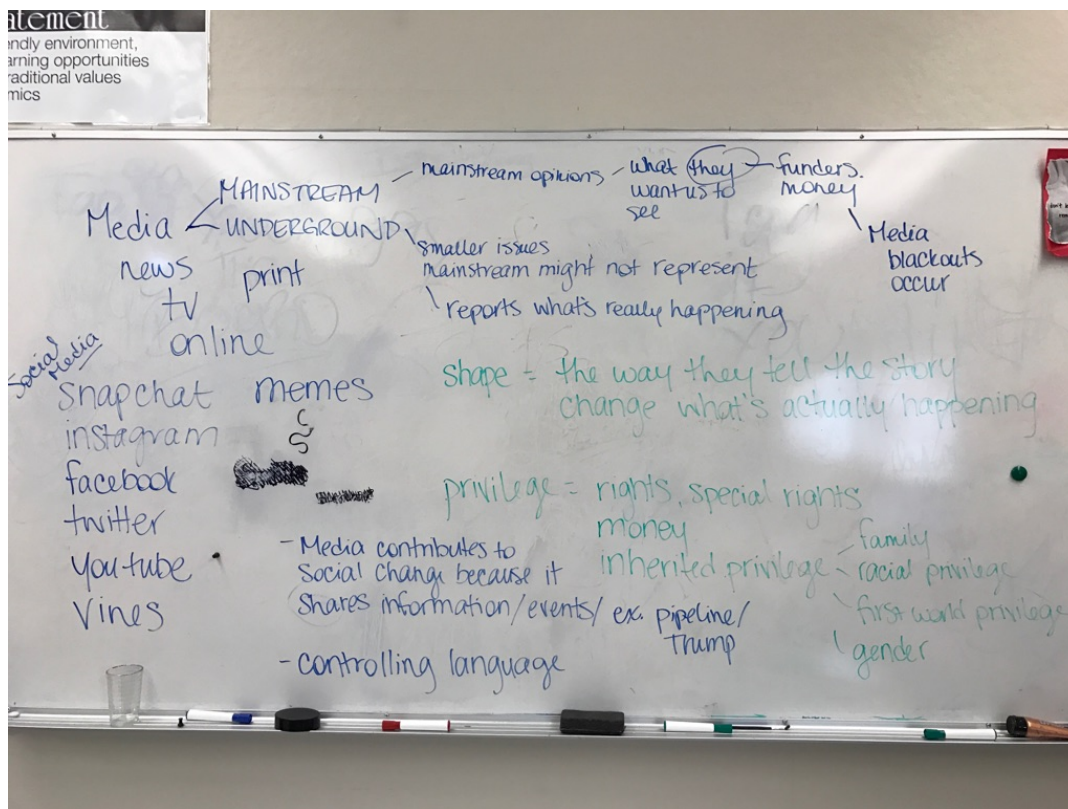 atement
endly environment,
arning opportunities
raditional values
mics
Media
MAINSTREAM
UNDERGROUND
mainstream opinions
what they
want us to
see
funders.
money
Media
blackouts
occur
smaller issues
mainstream might not represent
reports what's really happening
news
print
tv
online
Social
Media
Snapchat
instagram
facebook
twitter
youtube
Vines
memes
shape = the way they tell the story
change what's actually happening
privilege = rights, special rights
money
inherited privilege
family
racial privilege
first world privilege
gender
- Media contributes to
Social change because it
Shares information/events/ ex. pipeline/
- controlling language